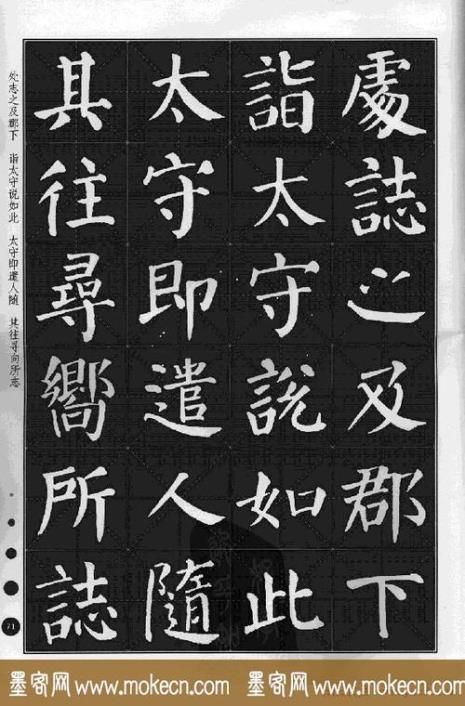 處誌之及郡下
詣太守說如此
太守即遣人隨
其往尋嚮所誌
处志之及郡下 诣太守说如此 太守即遣人随 其往寻向所志
71
墨客网 www.mokecn.com 墨客网 www.mokecn.com